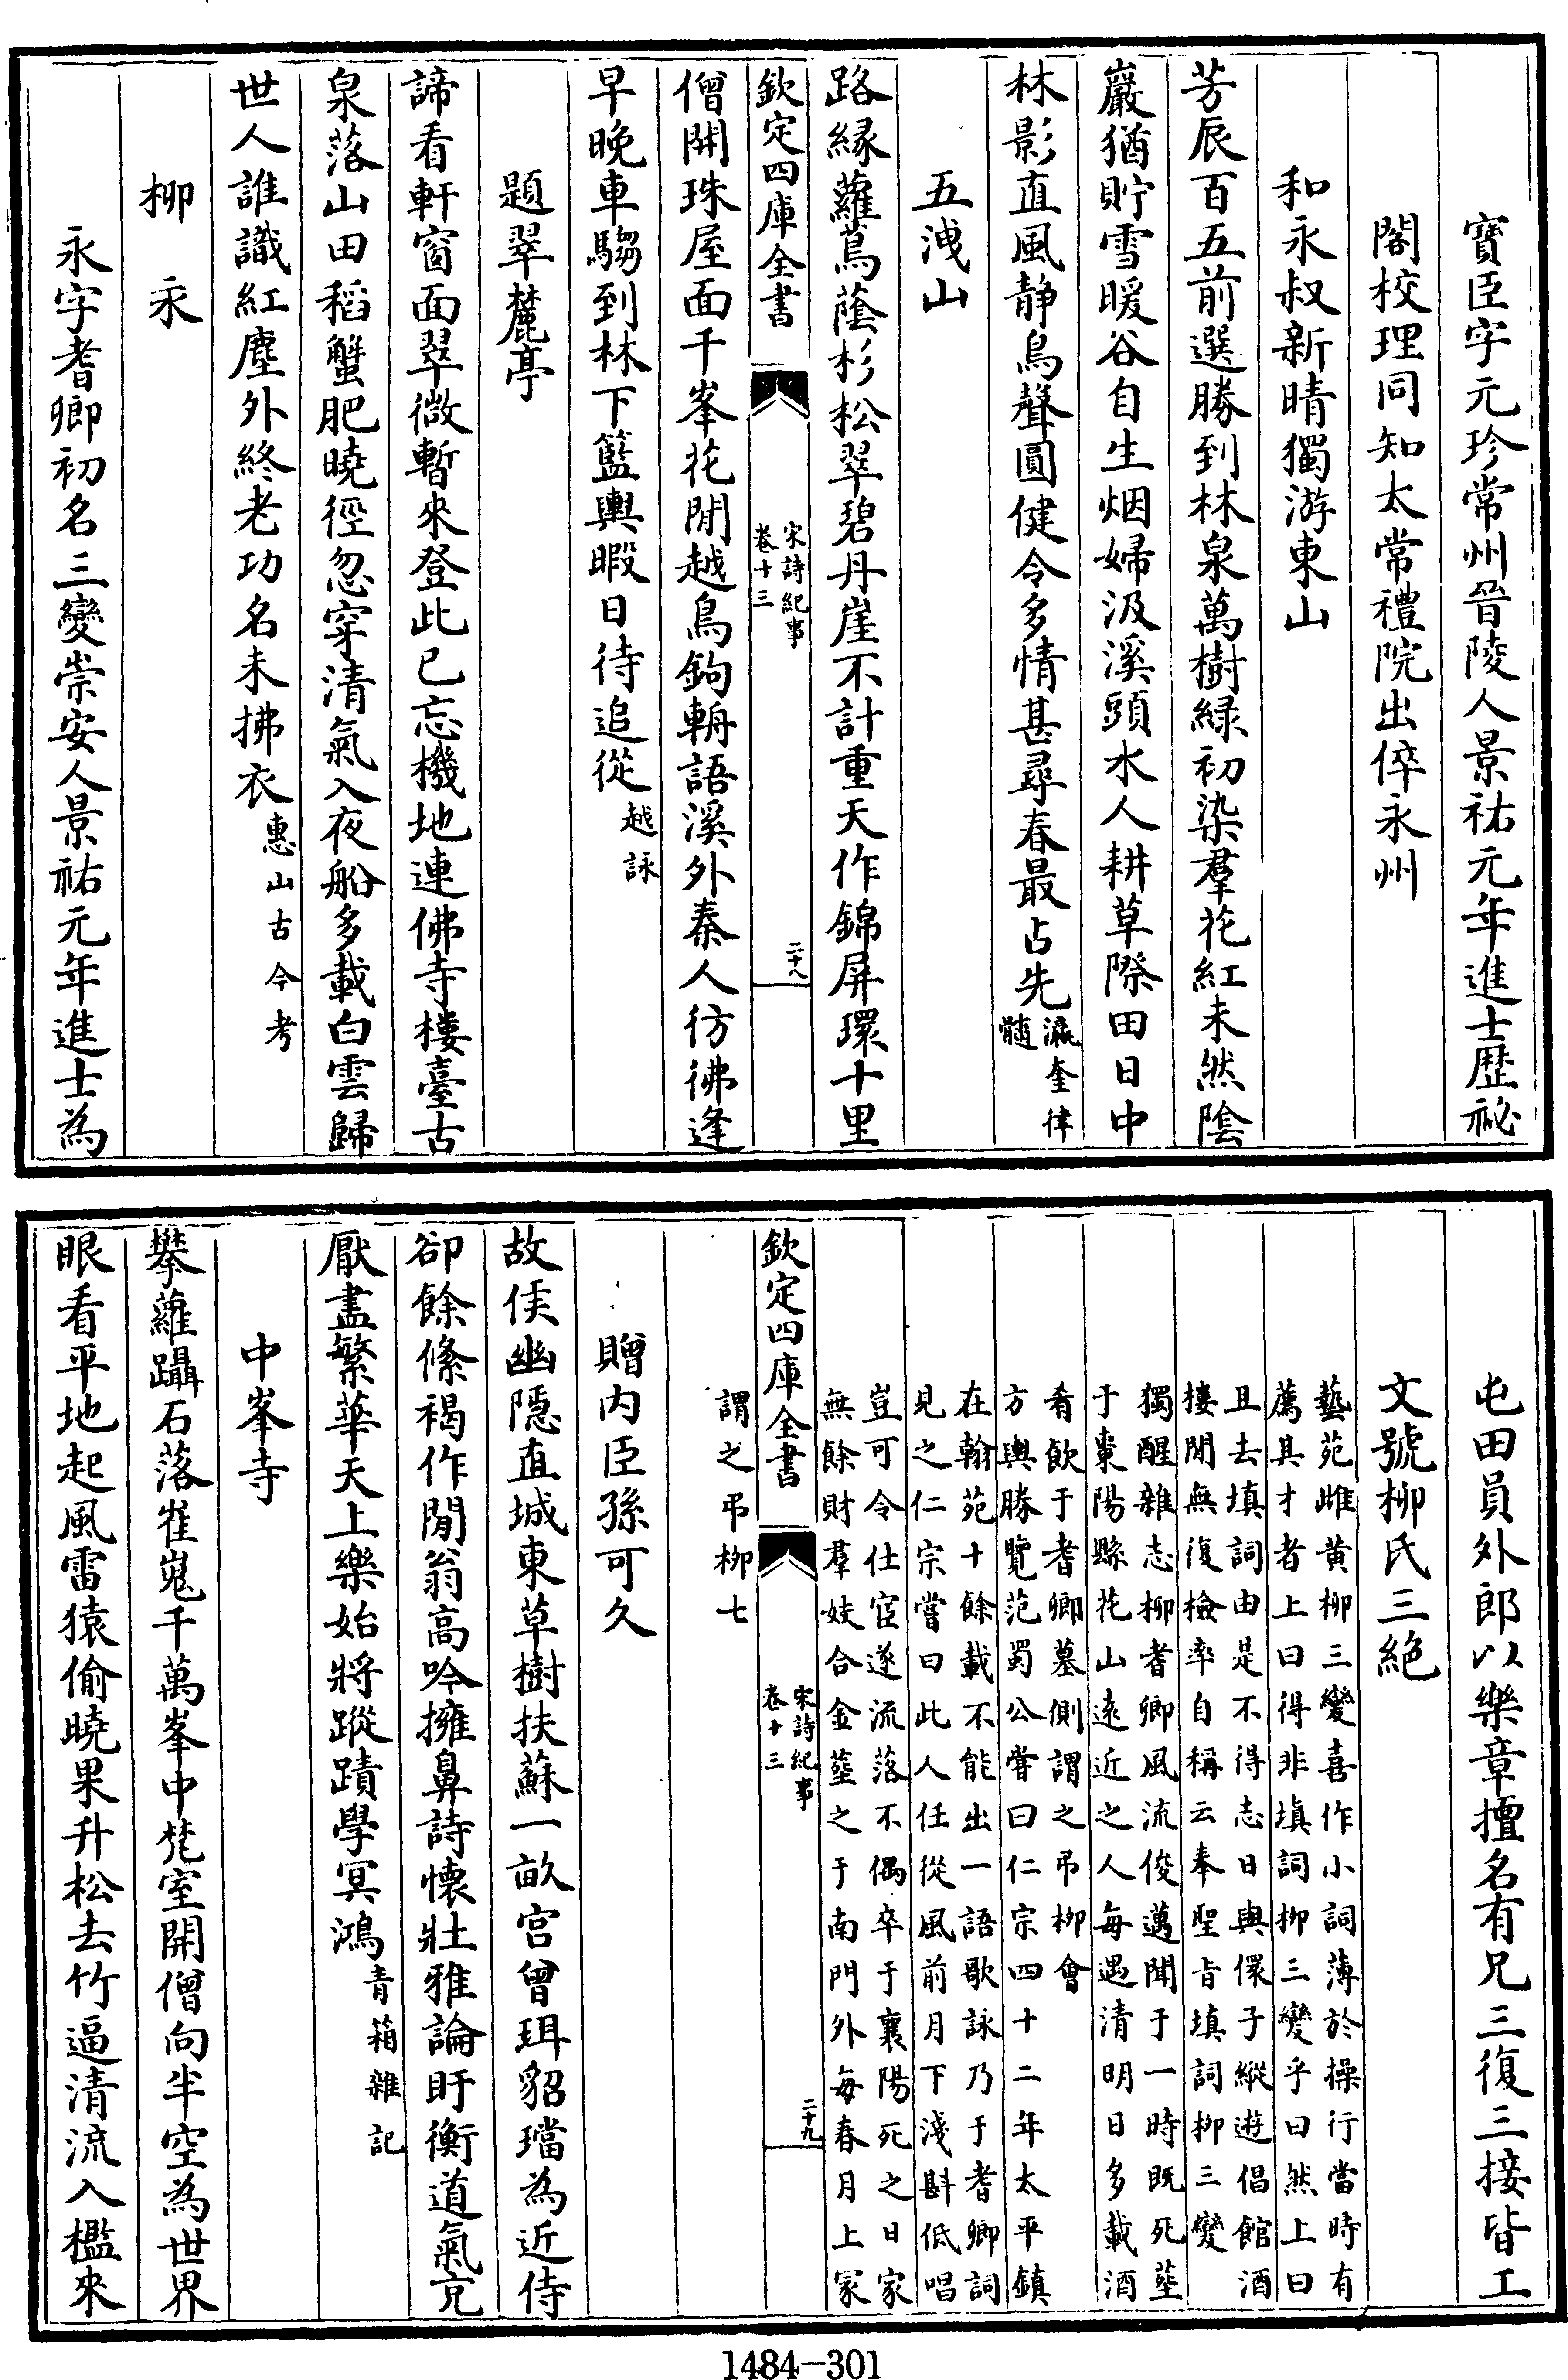 寶臣字元珍常州晉陵人景祐元年進士歴祕
閣校理同知太常禮院出倅永州
和永叔新晴獨游東山
芳辰百五前選勝到林泉萬樹緑初染羣花紅未然陰
巖猶貯雪暖谷自生烟婦汲溪頭水人耕草際田日中
林影直風静鳥聲圓健令多情甚尋春最占先瀛奎律
髓
五洩山
路緣蘿蔦蔭杉松翠碧丹崖不計重天作錦屏環十里
欽定四庫全書
宋詩紀事
卷十三
二十八
僧開珠屋面千峯花閒越鳥鉤輈語溪外秦人彷彿逢
早晚車騶到林下籃輿暇日待追從越詠
題翠麓亭
諦看軒窗面翠微暫來登此已忘機地連佛寺樓臺古
泉落山田稻蟹肥曉徑忽穿清氣入夜船多載白雲歸
世人誰識紅塵外終老功名未拂衣惠山古今考
柳永
永字耆卿初名三變崇安人景祐元年進士為
屯田員外郎以樂章擅名有兄三復三接皆工
文號柳氏三絕
藝苑雌黄柳三變喜作小詞薄於操行當時有
薦其才者上曰得非填詞柳三變乎曰然上曰
且去填詞由是不得志日與儇子縱遊倡館酒
樓閒無復檢率自稱云奉聖旨填詞柳三變
獨醒雜志柳耆卿風流俊邁聞于一時既死塟
于棗陽縣花山遠近之人每遇清明日多載酒
肴飲于耆卿墓側謂之弔柳會
方輿勝覽范蜀公嘗曰仁宗四十二年太平鎮
在翰苑十餘載不能出一語歌詠乃于耆卿詞
見之仁宗嘗曰此人任從風前月下淺斟低唱
豈可令仕宦遂流落不偶卒于襄陽死之日家
無餘財羣妓合金塟之于南門外每春月上冢
欽定四庫全書
宋詩紀事
卷十三
二十九
謂之弔柳七
贈内臣孫可久
故侯幽隱直城東草樹扶蘇一畝宫曾珥貂璫為近侍
卻餘絛褐作閒翁高吟擁鼻詩懷壯雅論盱衡道氣充
厭盡繁華天上樂始將蹤蹟學冥鴻青箱雜記
中峯寺
攀蘿躡石落崔嵬千萬峯中梵室開僧向半空為世界
眼看平地起風雷猿偷曉果升松去竹逼清流入檻來
1484-301